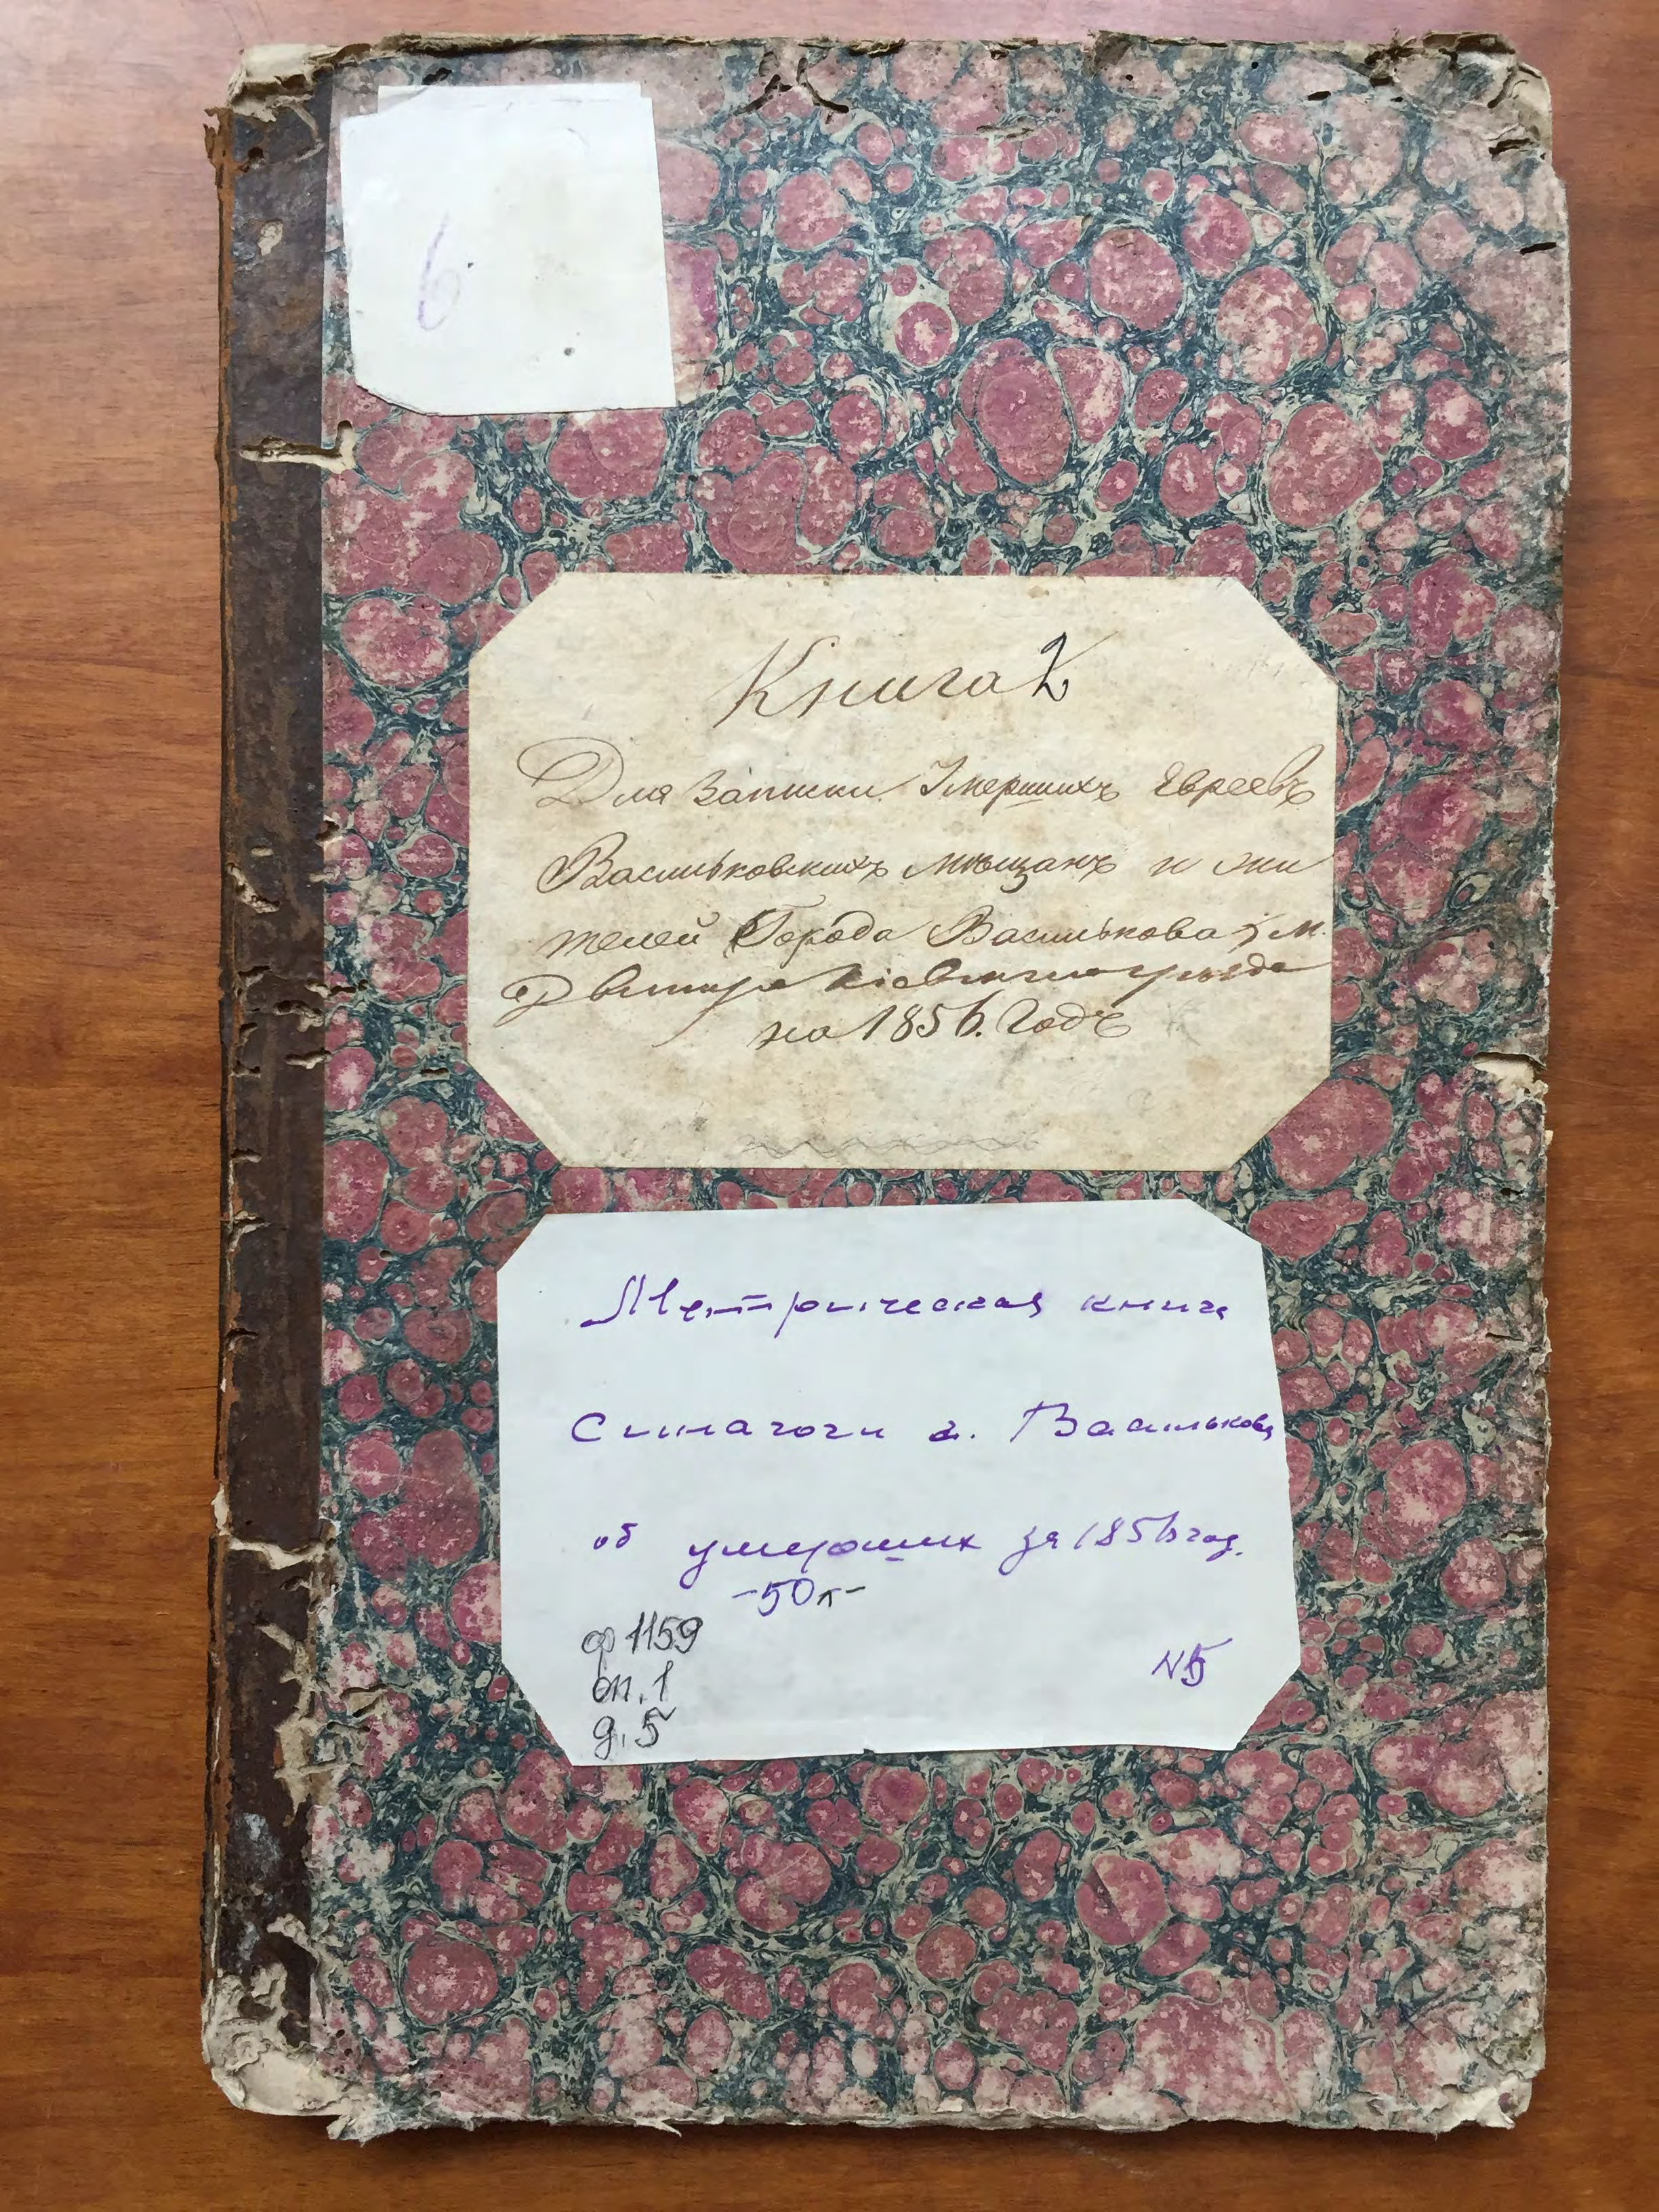 6
Книга 2
Для записки Умершихъ Евреевъ
Васильковскихъ мѣщанъ и жи
телей Города Василькова
на 1856. Годъ
Метрическая книга
Синагоги г. Василькова
об умерших за 1856 год.
-50л-
ф 1159
оп. 1
д. 5
№5